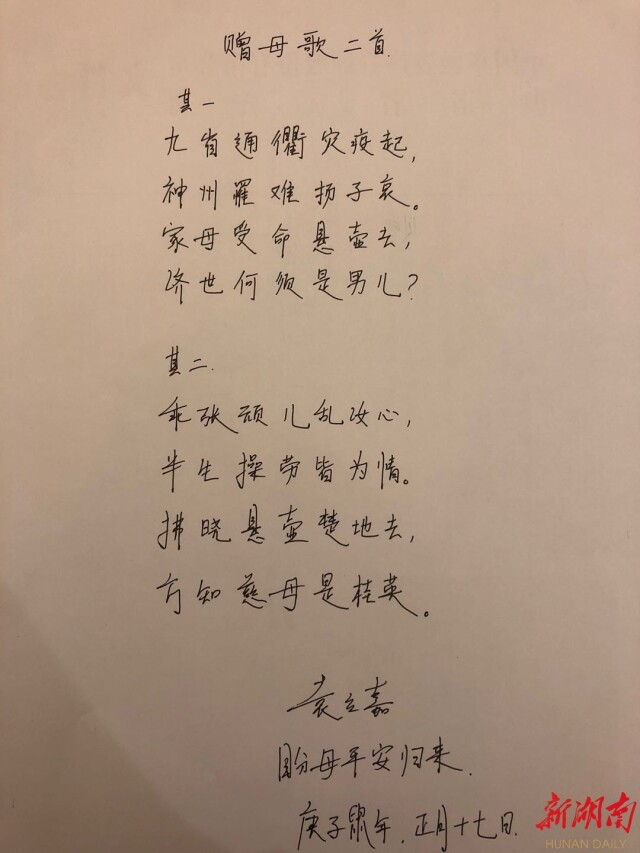 赠母歌二首.
其一
九省通衢灾疫起,
神州罹难扬子哀。
家母受命悬壶去,
济世何须是男儿?
其二.
乖张顽儿乱汝心,
半生操劳皆为情。
拂晓悬壶楚地去,
方知慈母是桂英。
袁立嘉
盼母平安归来.
庚子鼠年.正月十七日.
新湖南
HUNAN DAILY